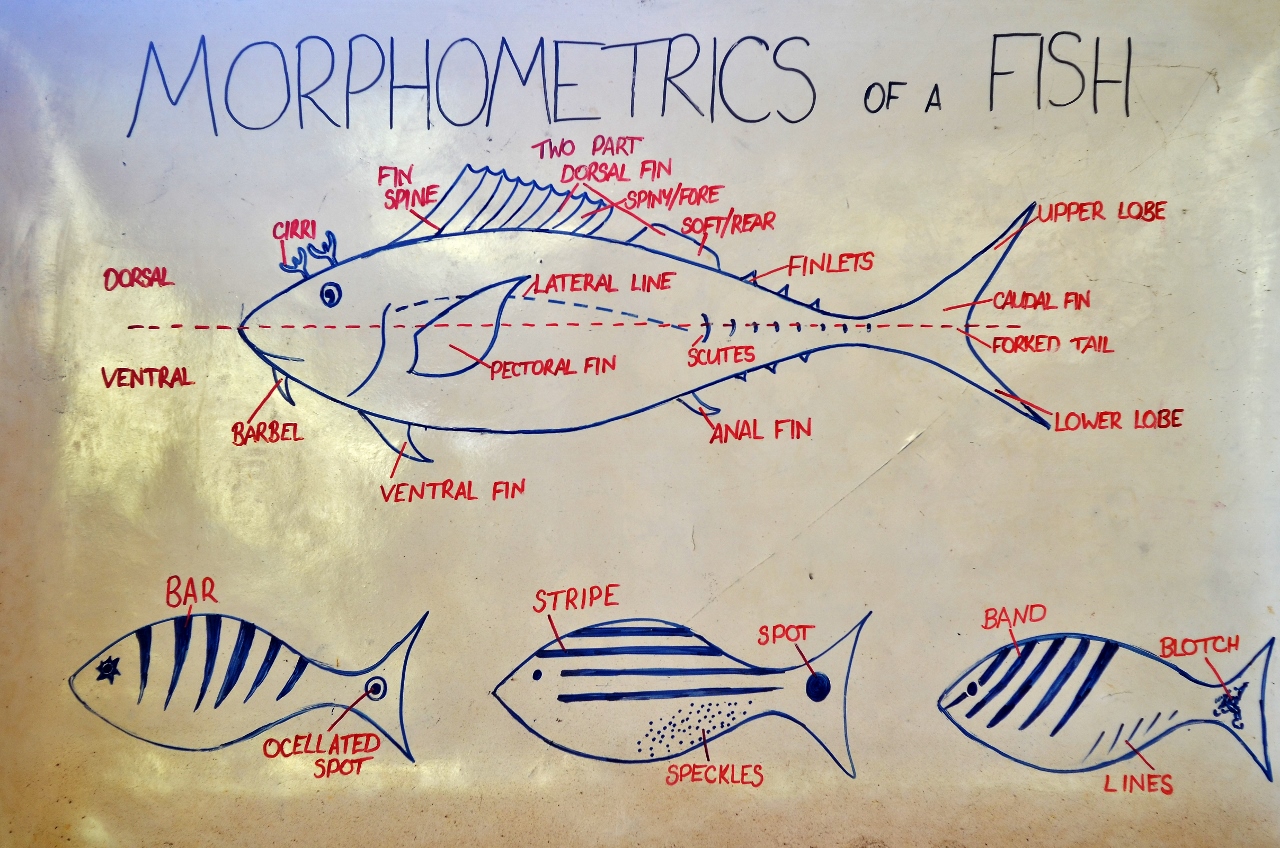 MORPHOMETRICS OF A FISH
TWO PART
DORSAL FIN
FIN
SPINE
SPINY/FORE
SOFT/REAR
UPPER LOBE
CIRRI
FINLETS
DORSAL
LATERAL LINE
CAUDAL FIN
FORKED TAIL
SCUTES
PECTORAL FIN
VENTRAL
BARBEL
ANAL FIN
LOWER LOBE
VENTRAL FIN
BAR
OCELLATED
SPOT
STRIPE
SPOT
SPECKLES
BAND
BLOTCH
LINES